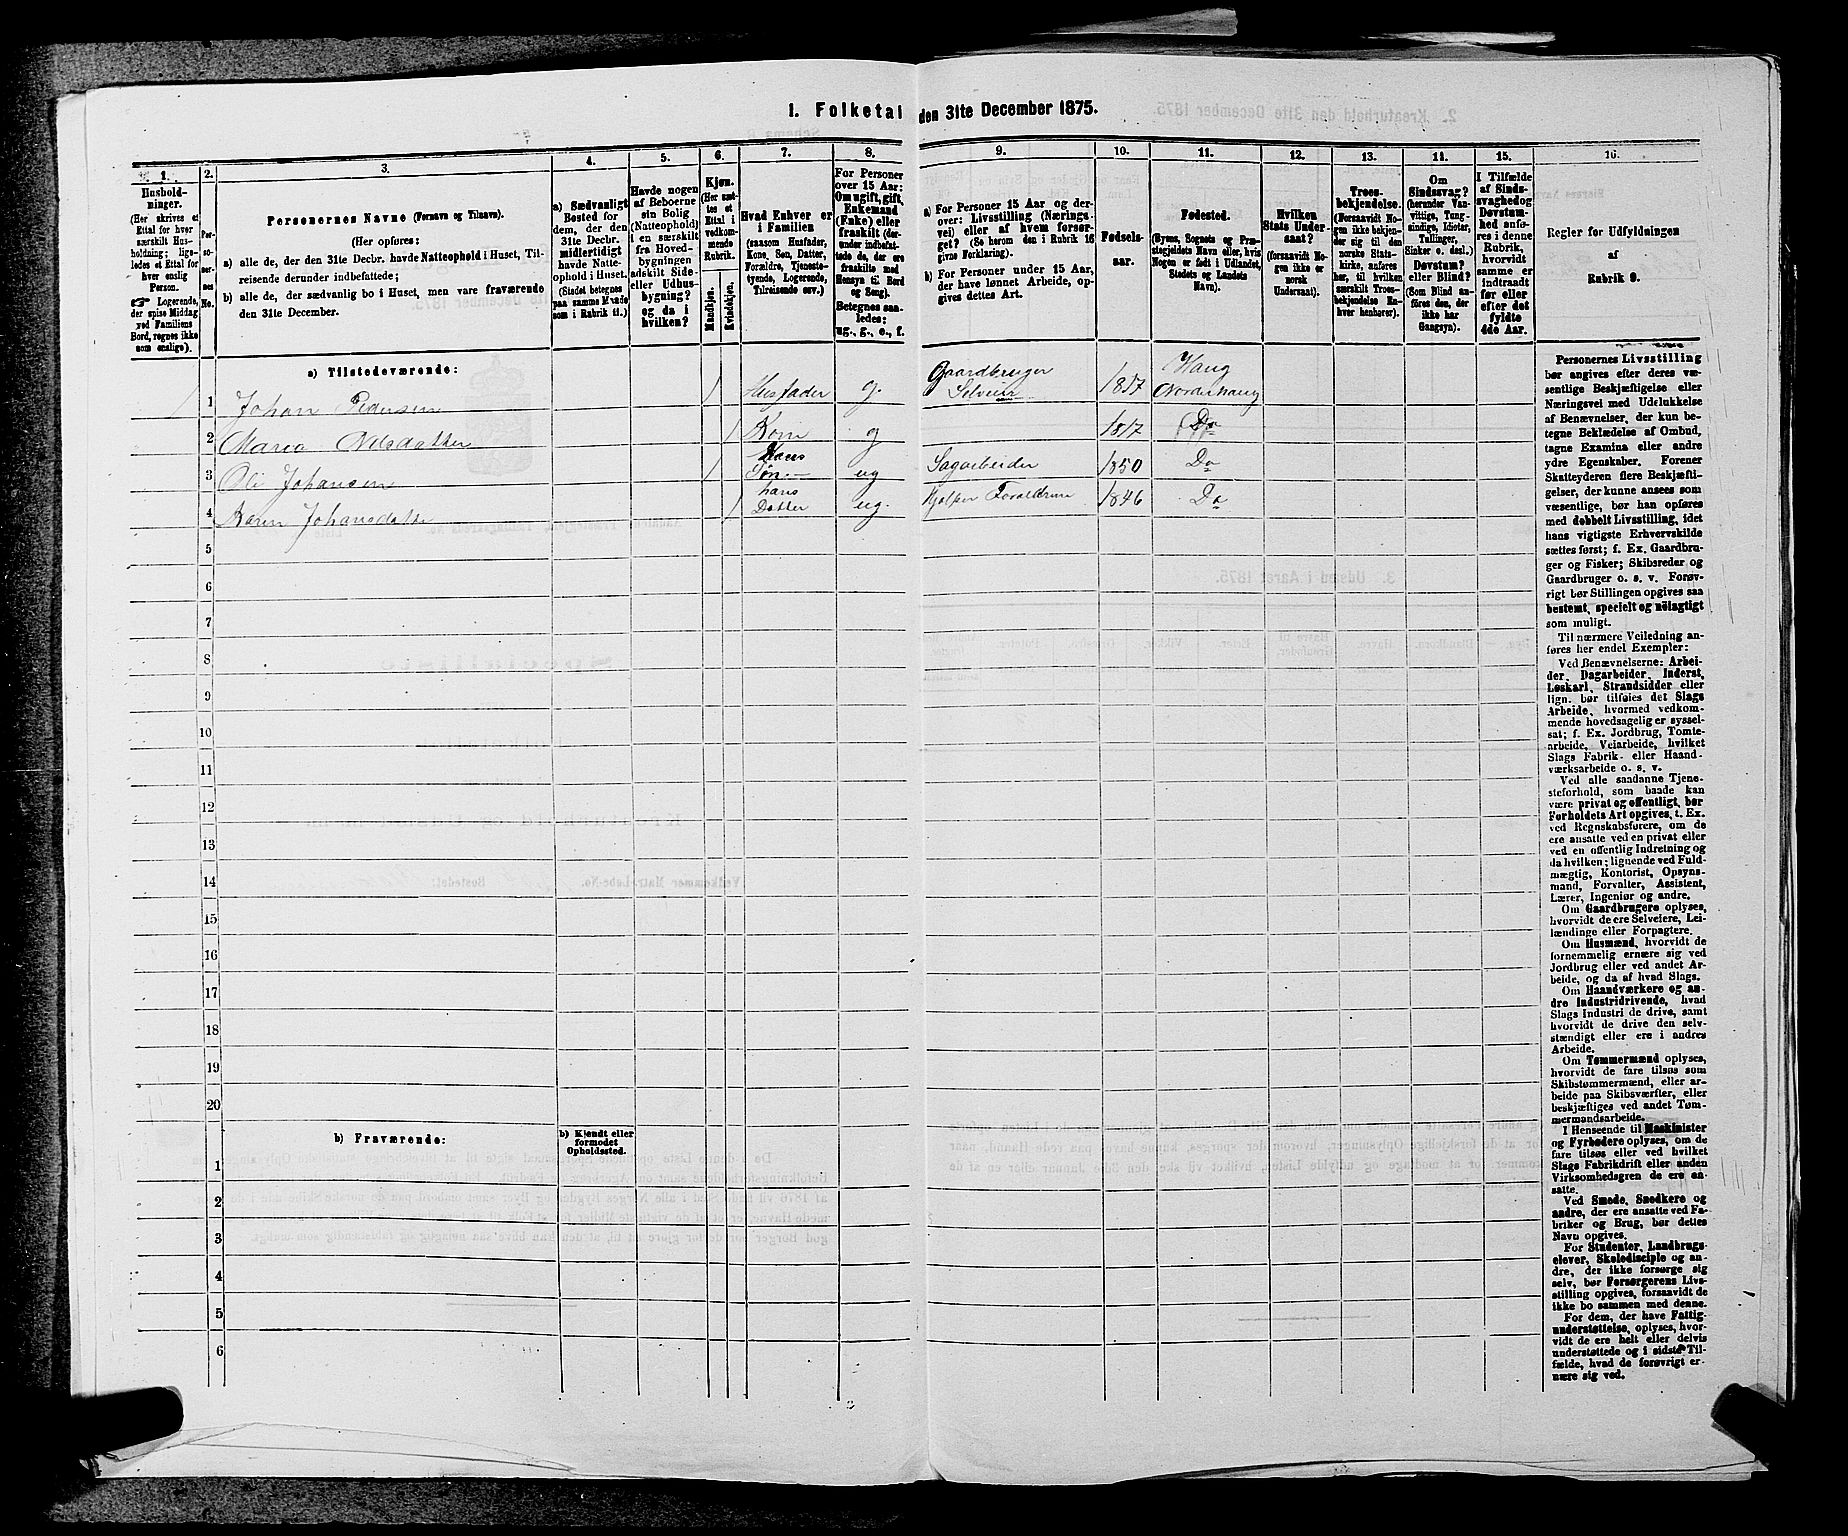 1. Folketal den 31te December 1875.
1.
Hushold-
ninger.
(Her skrives et
Ettal for hver
særskilt Hus-
holdning; lige-
ledes et Ettal for
hver enslig
Person.
☞ Logerende,
der spise Middag
ved Familiens
Bord, regnes ikke
som enslige).
2.
Per-
soner-
nes
No.
3.
Personernes Navne (Fornavn og Tilnavn).
(Her opføres:
a) alle de, der den 31te Decbr. havde Natteophold i Huset, Til-
reisende derunder indbefattede;
b) alle de, der sædvanlig bo i Huset, men vare fraværende
den 31te December.
4.
a) Sædvanligt
Bosted for
dem, der den
31te Decbr.
midlertidigt
havde Natte-
ophold i Huset.
(Stedet betegnes
paa samme Maade
som i Rubrik 11.)
5.
Havde nogen
af Beboerne
sin Bolig
(Natteophold)
i en særskilt
fra Hoved-
bygningen
adskilt Side-
eller Udhus-
bygning?
og da i
hvilken?
6.
Kjøn.
(Her sæt-
tes et
Ettal i
vedkom-
mende
Rubrik.
Mandkjøn.
Kvindekjøn.
7.
Hvad Enhver er
i Familien
(saasom Husfader,
Kone, Søn, Datter,
Forældre, Tjeneste-
tyende, Logerende,
Tilreisende osv.)
8.
For Personer
over 15 Aar:
Om ugift, gift,
Enkemand
(Enke) eller
fraskilt (der-
under indbefat-
tede de, der ere
fraskilte med
Hensyn til Bord
og Seng).
Betegnes saa-
ledes:
ug., g., e., f.
9.
a) For Personer 15 Aar og der-
over: Livsstilling (Nærings-
vei) eller af hvem forsør-
get? (Se herom den i Rubrik 16
givne Forklaring).
b) For Personer under 15 Aar,
der have lønnet Arbeide, op-
gives dettes Art.
10.
Fødsels-
aar.
11.
Fødested.
(Byens, Sognets og Præ-
stegjeldets Navn eller, hvis
Nogen er født i Udlandet,
Stedets og Landets
Navn).
12.
Hvilken
Stats Under-
saat?
(forsaavidt No-
gen ikke er
norsk
Undersaat).
13.
Troes-
bekjendelse.
(Forsaavidt No-
gen ikke bekjen-
der sig til den
norske Stats-
kirke, anføres
her, til hvilken
særskilt Troes-
bekjendelse En-
hver henhører).
14.
Om
Sindssvag?
(herunder Van-
vittige, Tung-
sindige, Idioter,
Tullinger,
Sinker o. desl.)
Døvstum?
eller Blind?
(Som Blind an-
føres den, der
ikke har
Gangsyn).
15.
I Tilfælde
af Sinds-
svaghed og
Døvstum-
hed anfø-
res i denne
Rubrik,
hvorvidt
samme er
indtraadt
før eller
efter det
fyldte
4de Aar.
16.
Regler for Udfyldningen
af
Rubrik 9.
a) Tilstedeværende:
1 Johan Pedersen 1 Husfader g. Gaardbruger Selveier 1817 Haug Norderhaug
2 Maria Nilsdatter 1 Kone g 1817 Do
3 Ole Johansen 1 Hans Søn ug Sagarbeider 1850 Do
4 Karen Johansdatter 1 hans Datter ug. Hjælper Forældrene 1846 Do
5
6
7
8
9
10
11
12
13
14
15
16
17
18
19
20
b) Fraværende:
b) Kjendt eller
formodet
Opholdssted.
1
2
3
4
5
6
Personernes Livsstilling
bør angives efter deres væ-
sentlige Beskjæftigelse eller
Næringsvei med Udelukkelse
af Benævnelser, der kun be-
tegne Beklædelse af Ombud,
tagne Examina eller andre
ydre Egenskaber. Forener
Skatteyderen flere Beskjæf-
tigelser, der kunne ansees som
væsentlige, bør han opføres
med dobbelt Livsstilling, idet
hans vigtigste Erhvervskilde
sættes først; f. Ex. Gaardbru-
ger og Fisker; Skibsreder og
Gaardbruger o. s. v. Forøv-
rigt bør Stillingen opgives saa
bestemt, specielt og nøiagtigt
som muligt.
Til nærmere Veiledning an-
føres her endel Exempler:
Ved Benævnelserne: Arbei-
der, Dagarbeider, Inderst,
Løskarl, Strandsidder eller
lign. bør tilføies det Slags
Arbeide, hvormed vedkom-
mende hovedsagelig er syssel-
sat; f. Ex. Jordbrug, Tomte-
arbeide, Veiarbeide, hvilket
Slags Fabrik- eller Haand-
værksarbeide o. s. v.
Ved alle saadanne Tjene-
steforhold, som baade kan
være privat og offentligt, bør
Forholdets Art opgives, t. Ex.
ved Regnskabsførere, om de
ere ansatte ved en privat eller
ved en offentlig Indretning og
da hvilken; lignende ved Fuld-
mægtig, Kontorist, Opsyns-
mand, Forvalter, Assistent,
Lærer, Ingeniør og andre.
Om Gaardbrugere oplyses,
hvorvidt de ere Selveiere, Lei-
lændinge eller Forpagtere.
Om Husmænd, hvorvidt de
fornemmelig ernære sig ved
Jordbrug eller ved andet Ar-
beide, og da af hvad Slags.
Om Haandværkere og an-
dre Industridrivende, hvad
Slags Industri de drive, samt
hvorvidt de drive den selv-
stændigt eller ere i andres
Arbeide.
Om Tømmermænd oplyses,
hvorvidt de fare tilsøs som
Skibstømmermænd, eller ar-
beide paa Skibsværfter, eller
beskjæftiges ved andet Tøm-
mermandsarbeide.
I Henseende til Maskinister
og Fyrbødere oplyses, om de
fare tilsøs eller ved hvilket
Slags Fabrikdrift eller anden
Virksomhedsgren de ere an-
satte.
Ved Smede, Snedkere og
andre, der ere ansatte ved Fa-
briker og Brug, bør dettes
Navn opgives.
For Studenter, Landbrugs-
elever, Skoledisciple og an-
dre, der ikke forsørge sig
selv, bør Forsørgerens Livs-
stilling opgives, forsaavidt de
ikke bo sammen med denne.
For dem, der have Fattig-
understøttelse, oplyses, hvor-
vidt de ere helt eller delvis
understøttede og i sidste Til-
fælde, hvad de forøvrigt er-
nære sig ved.